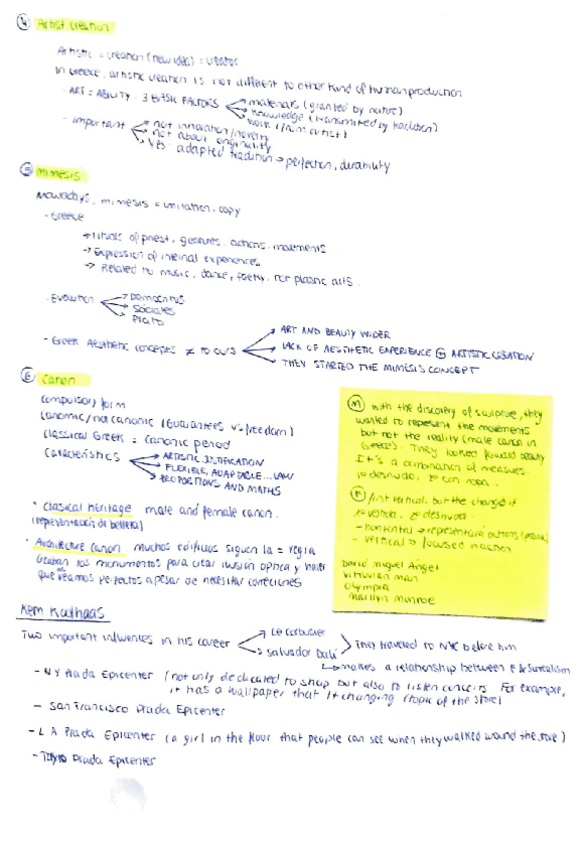 Artist creation
Artistic = creation (new idea) = creator
In Greece, artistic creation is not different to other kind of human production
- ART = ABILITY. 3 BASIC FACTORS
materials (granted by nature)
knowledge (transmitted by tradition)
work (from artist)
- important
not innovation/novelty
not about originality
Yes: adapted tradition → perfection, durability
Mimesis
mimesis = imitation, copy
- Greece
→ rituals of priest, gestures, actions, movements
→ Expression of internal experiences
→ Related to music, dance, poetry, not plastic arts.
- Evolution
→ Democritus
Socrates
Plato
- Greek Aesthetic concepts ≠ to ours
ART AND BEAUTY WIDER
LACK OF AESTHETIC EXPERIENCE ARTISTIC CREATION
THEY STARTED THE MIMESIS CONCEPT
Canon
compulsory form
canonic/not canonic (Guarantees vs freedom)
Classical Greek = canonic period
Caracteristics
ARTISTIC JUSTIFICATION
FLEXIBLE, ADAPTABLE... LAW
PROPORTIONS AND MATHS
· Clasical heritage male and female canon.
(representación de belleza)
· Architecture canon Muchos edificios siguen la = regla
los monumentos para crear ilusion optica y hacer
que veamos perfectos a pesar de necesitar correciones
M with the discovery of sculpture, they
wanted to represent the movements
but not the reality (male canon in
Greece). They looked toward beauty
It's a combination of measures.
F first vertical, but the changed it
- horizontal → representara actions
- vertical → focused in action
David Miguel Angel
Vitruvian man
Olympia
Marilyn Monroe
Rem Koolhaas
Two important influences in his career
Le Corbusier
Salvador Dalí
They traveled to NYC before him
→ makes a relationship between & surrealism
- NY Prada Epicenter (not only dedicated to shop but also to listen concerts. For example,
it has a wallpaper that it changing (topic of the store)
- San Francisco Prada Epicenter
- LA Prada Epicenter (a girl in the floor that people can see when they walked around the store)
- Tokyo Prada Epicenter